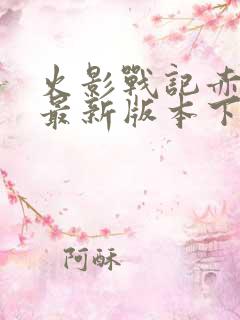 火影戰記赤
最新版本下
阿酥